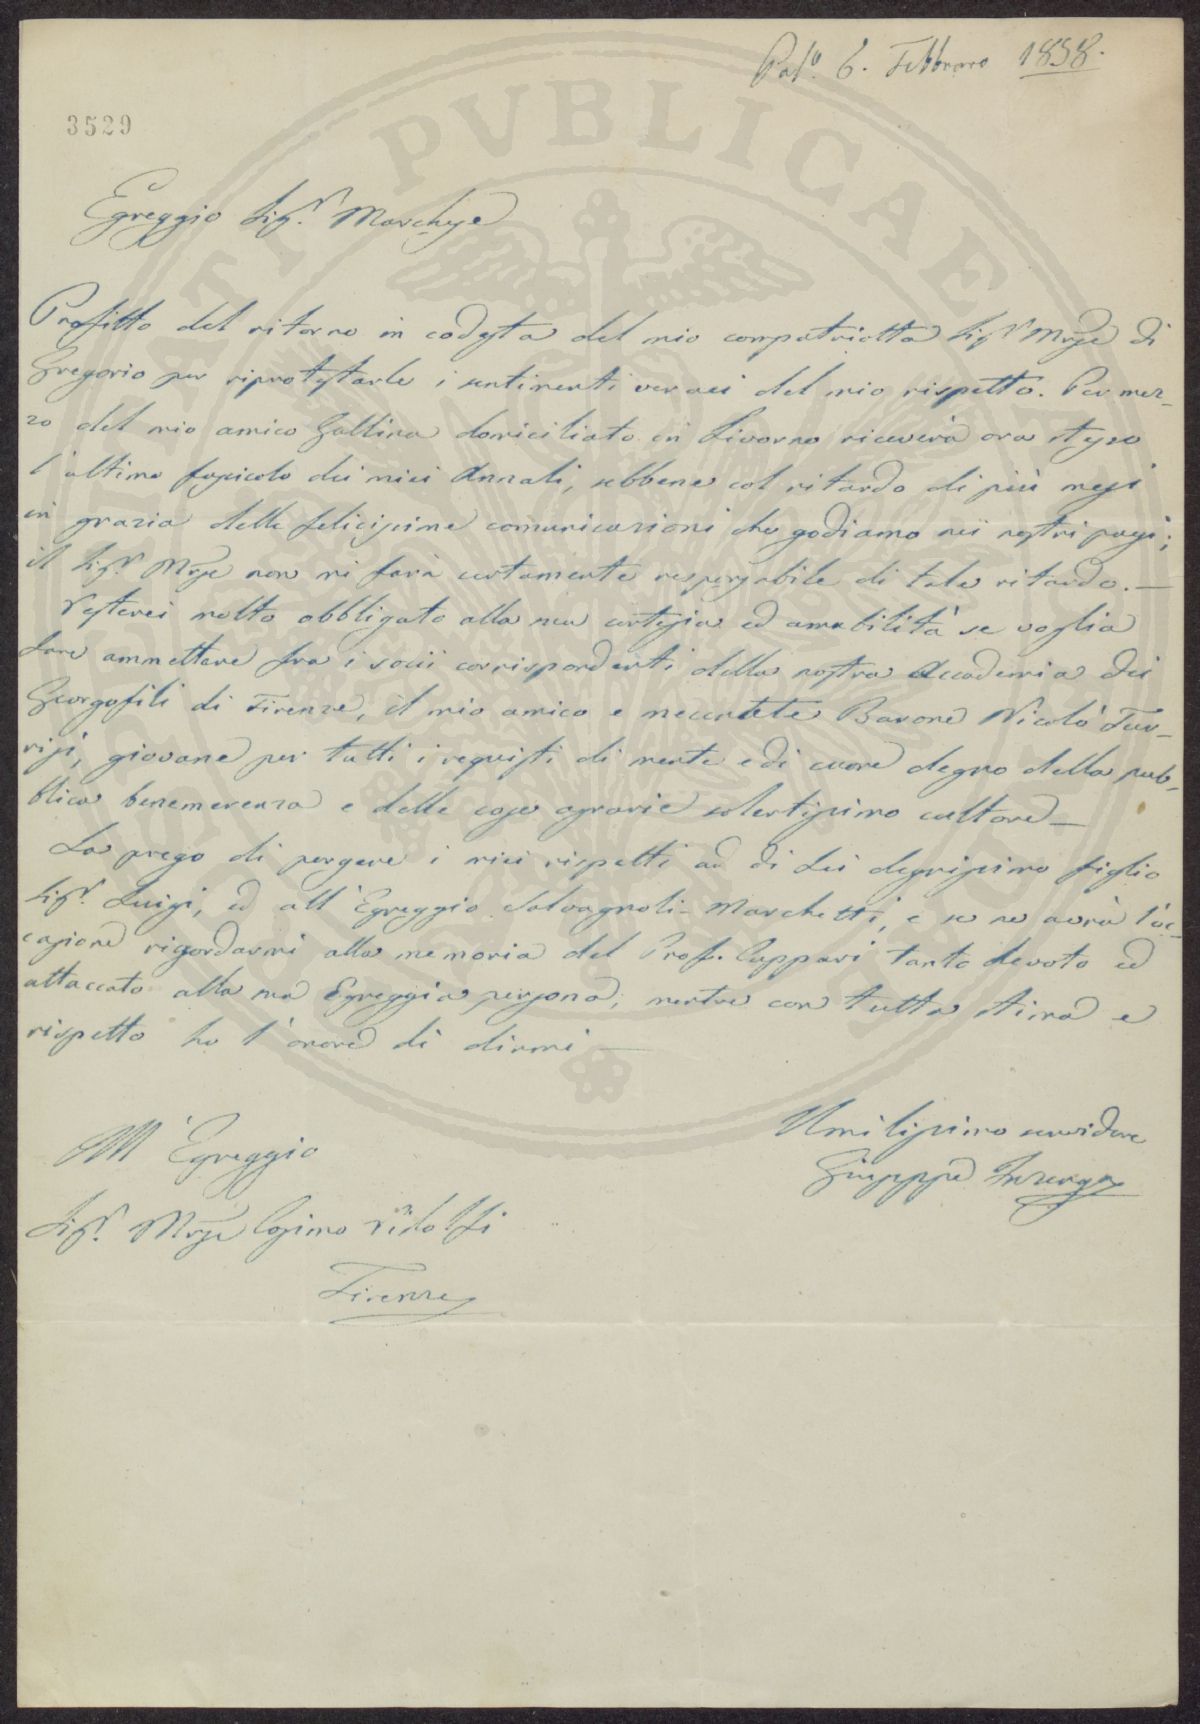 Pal.o 6. Febbraro 1858.
3529
Egreggio Sig.r Marchese
Profitto del ritorno in codesta del mio compatriotta Sig.r M.se di
Gregorio per riprotestarle i sentimenti veraci del mio rispetto. Per mez-
zo del mio amico Gallina domiciliato in Livorno riceverà ora stesso
l'ultimo fascicolo dei miei Annali, sebbene col ritardo di più mesi
in grazia delle felicissime comunicazioni che godiamo nei nostri paesi;
il Sig.r M.se non mi farà certamente responsabile di tale ritardo. —
Resterei molto obbligato alla sua cortesia ed amabilità se voglia
fare ammettere fra i socii corrispondenti della nostra Accademia dei
Georgofili di Firenze, il mio amico e mecenate Barone Nicolò Tur-
risi, giovane per tutti i requisiti di mente e di cuore degno della pub-
blica benemerenza e delle cose agrarie solertissimo cultore —
La prego di porgere i miei rispetti ad di Lei degnissimo figlio
Sig.r Luigi, ed all'Egreggio Salvagnoli-Marchetti, e se ne avrà l'oc-
casione ricordarmi alla memoria del Prof. Cuppari tanto devoto ed
attaccato alla sua Egreggia persona; mentre con tutta stima e
rispetto ho l'onore di dirmi —
Umilissimo servidore
Giuseppe Inzenga
All'Egreggio
Sig.r M.se Cosimo Ridolfi
Firenze